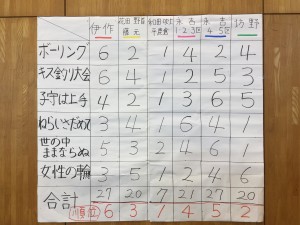 伊作 花田 野首 藤元 永吉 1.2.3区 永吉 4.5区 坊野
ボーリング 6 2 1 4 2 4
キス釣り大会 6 4 1 2 5 3
子守は上手 4 2 1 3 6 5
ねらいさだめて 3 4 1 6 4 1
世の中ままならぬ 5 3 2 4 6 1
女性の輪 3 5 1 2 4 6
合計 27 20 7 21 27 20
順位 6 3 1 4 5 2